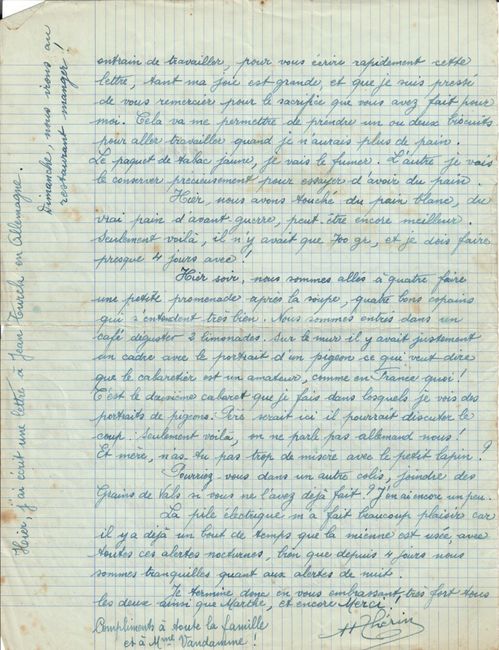 entrain de travailler, pour vous écrire rapidement cette
lettre, tant ma joie est grande, et que je suis pressé
de vous remercier pour le sacrifice que vous avez fait pour
moi. Cela va me permettre de prendre un ou deux biscuits
pour aller travailler quand je n'aurais plus de pain.
Le paquet de tabac jaune, je vais le fumer. L'autre je vais
le conserver précieusement pour essayer d'avoir du pain.
Hier, nous avons touché du pain blanc, du
vrai pain d'avant guerre, peut-être encore meilleur.
Seulement voilà, il n'y avait que 700 gr, et je dois faire
presque 4 jours avec !
Hier soir, nous sommes allés à quatre faire
une petite promenade après la soupe, quatre bons copains
qui s'entendent très bien. Nous sommes entrés dans un
café déguster 2 limonades. Sur le mur il y avait justement
un cadre avec le portrait d'un pigeon ce qui veut dire
que le cabaretier est un amateur, comme en France quoi !
C'est le deuxième cabaret que je fais dans lesquels je vois des
portraits de pigeons. Père serait ici il pourrait discuter le
coup. Seulement voilà, on ne parle pas allemand nous !
Et mère, n'as-tu pas trop de misère avec le petit lapin ?
Pourriez-vous dans un autre colis, joindre des
Grains de Vals si vous ne l'avez déjà fait ? J'en ai encore un peu.
La pile électrique m'a fait beaucoup plaisir car
il y a déjà un bout de temps que la mienne est usée, avec
toutes ces alertes nocturnes, bien que depuis 4 jours nous
sommes tranquilles quant aux alertes de nuit.
Je termine donc en vous embrassant très fort tous
les deux ainsi que Marthe, et encore Merci.
Compliments à toute la famille
et à Mme Vandamme !
Hier, j'ai écrit une lettre à Jean en Allemagne.
Dimanche, nous irons au
restaurant manger !